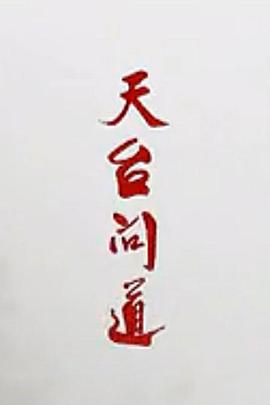 天台问道